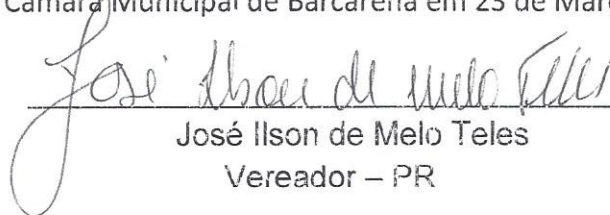 Câmara Municipal de Barcarena em 23 de Mar
José Ilson de Melo Teles
José Ilson de Melo Teles
Vereador – PR